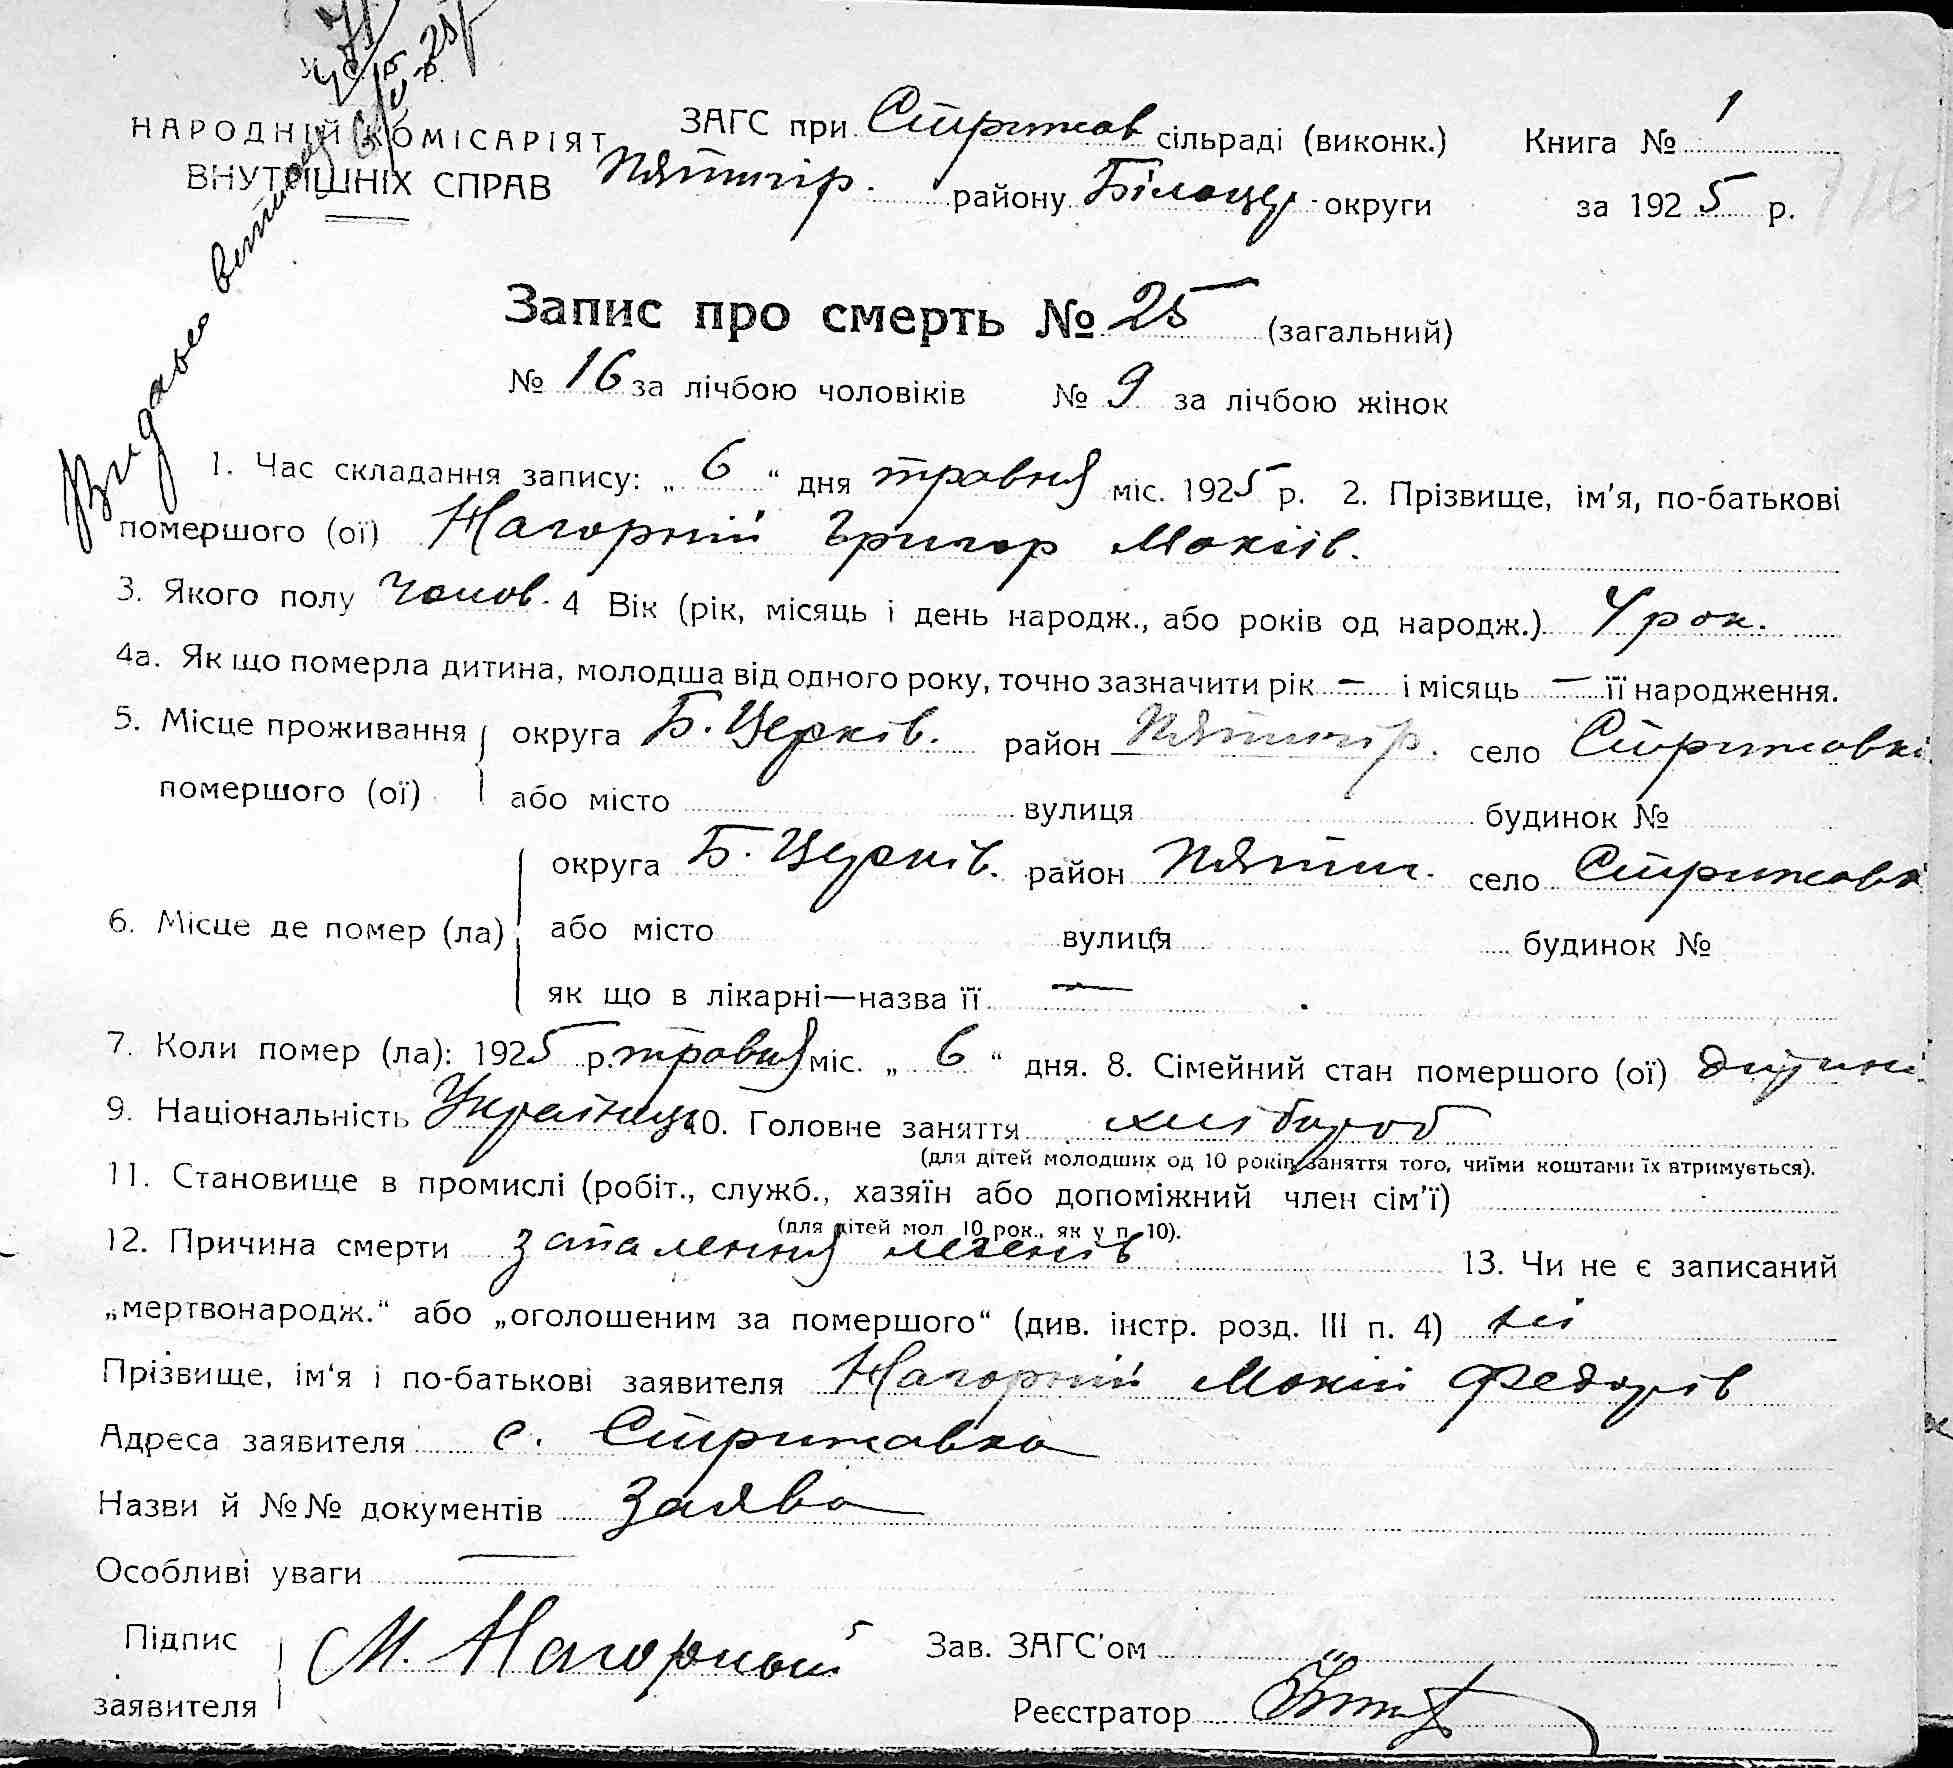 НАРОДНІЙ КОМІСАРІЯТ
ВНУТРІШНІХ СПРАВ
ЗАГС при Стрижав сільраді (виконк.) Книга № 1
Пятигір. району Білоцер округи за 1925 р.
Видано витяг
Запис про смерть № 25 (загальний)
№ 16 за лічбою чоловіків № 9 за лічбою жінок
1. Час складання запису: „ 6 “ дня травня міс. 1925 р. 2. Прізвище, ім'я, по-батькові
помершого (ої) Нагорній Григор Мокіїв.
3. Якого полу чолов. 4 Вік (рік, місяць і день народж., або років од народж.) 4 рок.
4а. Як що померла дитина, молодша від одного року, точно зазначити рік – і місяць – її народження.
5. Місце проживання округа Б. Церків. район Пятигір. село Стрижавкі
помершого (ої) або місто вулиця будинок №
округа Б. Церків. район Пятиг. село Стрижавк
6. Місце де помер (ла) або місто вулиця будинок №
як що в лікарні—назва її —
7. Коли помер (ла): 1925 р. травня міс. „ 6 “ дня. 8. Сімейний стан помершого (ої) дитині
9. Національність Українец 10. Головне заняття хлібороб
(для дітей молодших од 10 років заняття того, чиїми коштами їх втримується).
11. Становище в промислі (робіт., служб., хазяїн або допоміжний член сім'ї)
(для дітей мол. 10 рок., як у п. 10).
12. Причина смерти запалення легенів 13. Чи не є записаний
„мертвонародж.“ або „оголошеним за помершого“ (див. інстр. розд. III п. 4) ні
Прізвище, ім'я і по-батькові заявителя Нагорній Мокій Федорів
Адреса заявителя с. Стрижавка
Назви й №№ документів Заява
Особливі уваги —
Підпис заявителя М. Нагорный Зав. ЗАГС'ом
Реєстратор